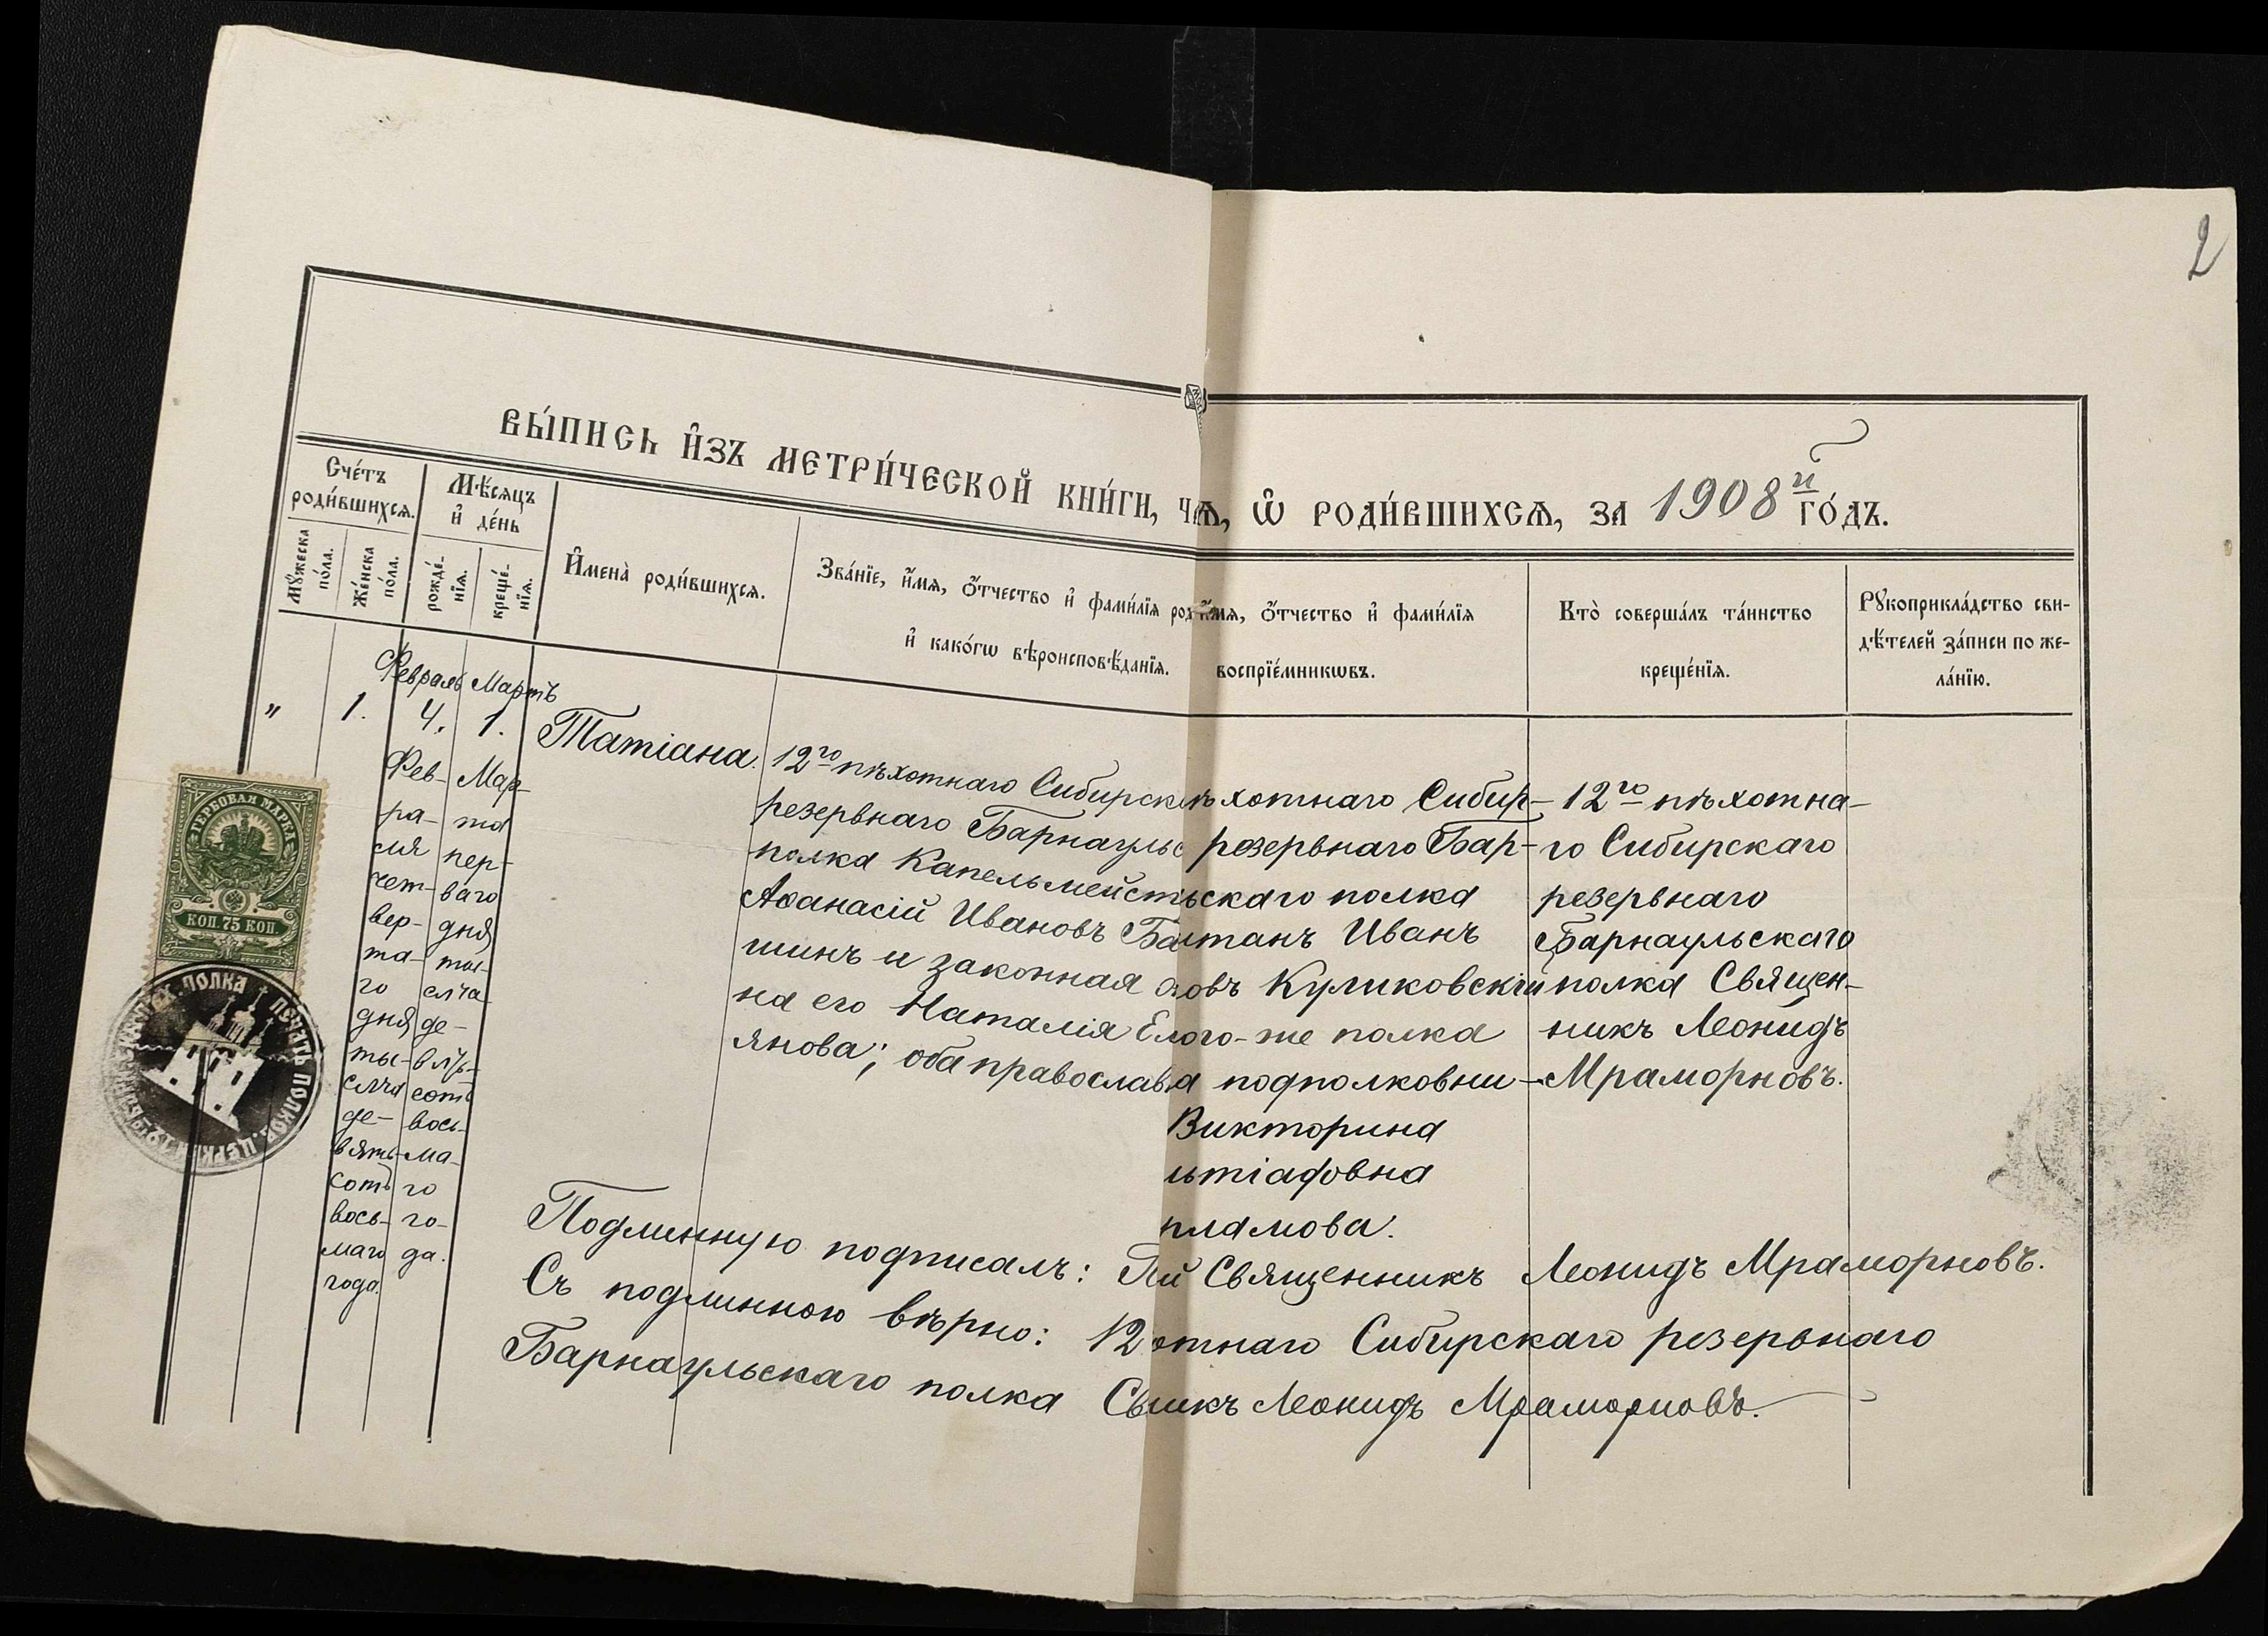 2
Вы́пись и҆зъ метри́ческой кни́ги, ча , ѡ҆ роди́вшихсѧ, за 1908й го́дъ.
Сче́тъ роди́вшихсѧ.
Мꙋ́жеска по́ла.
Же́нска по́ла.
Мѣ́сѧцъ и҆ де́нь
рожде́нїѧ.
креще́нїѧ.
И҆мена̀ роди́вшихсѧ.
Зва́нїе, и҆́мѧ, ѻ҆́тчество и҆ фами́лїѧ
и҆ како́гѡ вѣроисповѣ́данїѧ.
и҆́мѧ, ѻ҆́тчество и҆ фами́лїѧ
воспрїе́мникѡвъ.
Кто̀ соверша́лъ та́инство
креще́нїѧ.
Рꙋкоприкла́дство сви-
дѣ́телей за́писи по же-
ла́нїю.
"
1.
Февраль
4.
Фев-
ра-
ля
чет-
вер-
та-
го
дня
ты-
сяча
де-
вять-
сотъ
вось-
маго
года.
Мартъ
1.
Мар-
та
пер-
ваго
дня
ты-
сяча
де-
вять-
сотъ
вось-
ма-
го
го-
да.
Татіана.
12го пѣхотнаго Сибирск
резервнаго Барнаульс
полка Капельмейст
Аѳанасій Ивановъ Ба
шинъ и законная
на его Наталія Е
янова; оба православ
хотнаго Сибир-
резервнаго Бар-
скаго полка
танъ Иванъ
овъ Куликовскій
того-же полка
подполковни-
Викторина
ьтіафовна
пламова.
12го пѣхотна-
го Сибирскаго
резервнаго
Барнаульскаго
полка Священ-
никъ Леонидъ
Мраморновъ.
Подлинную подписалъ: Священникъ Леонидъ Мраморновъ.
Съ подлинною вѣрно: 12 отнаго Сибирскаго резервнаго
Барнаульскаго полка Св никъ Леонидъ Мраморновъ.
ГЕРБОВАЯ МАРКА
КОП. 75 КОП.
ПЕЧАТЬ ПОЛКОВ. ЦЕРКВИ 12
ПОЛКА